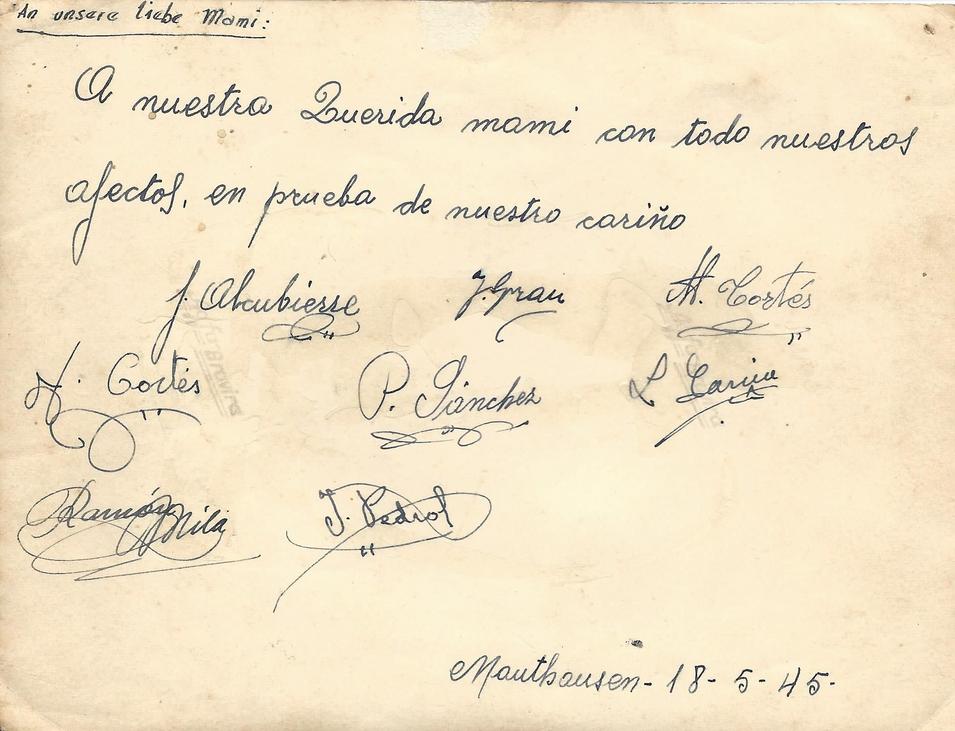 An unsere liebe Mami:
A nuestra Querida mami con todo nuestros
afectos, en prueba de nuestro cariño
J. Alcubierre J. Grau M. Cortés
N. Cortés P. Sánchez L.
Ramón Milá J. Pedrol
Mauthausen - 18 - 5 - 45 -